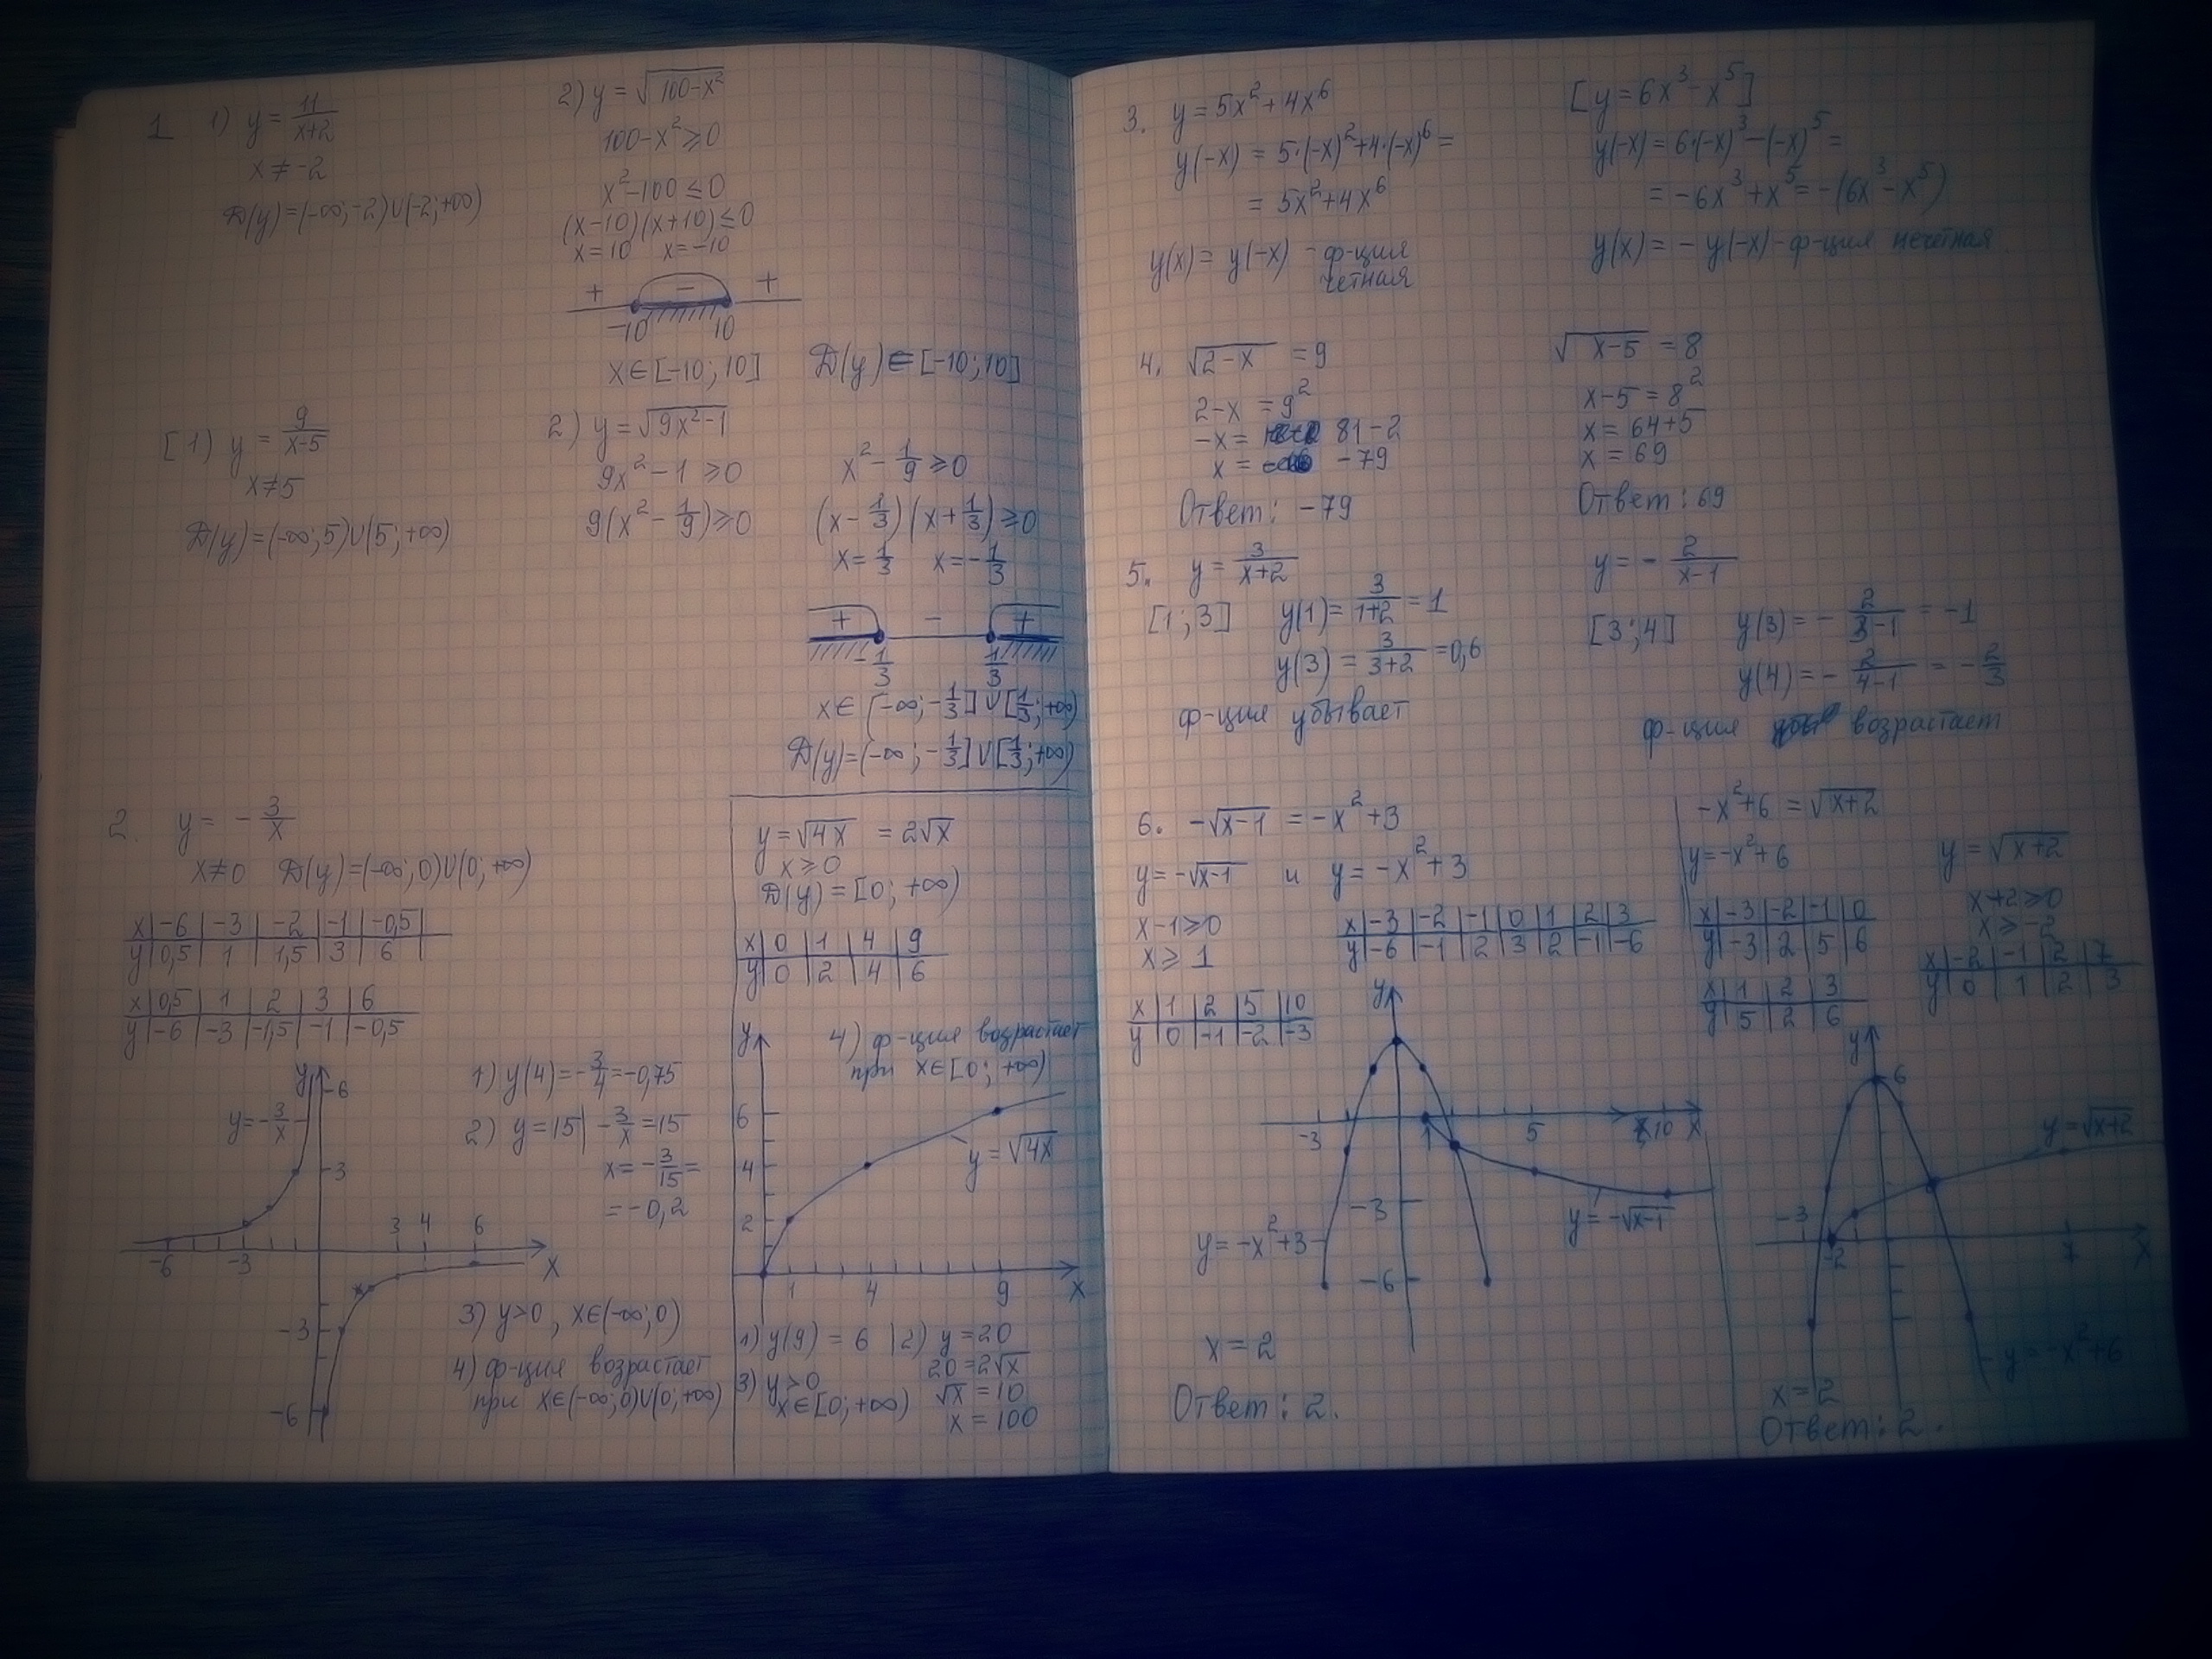 1 1) y = 11/(x+2)
x ≠ -2
D(y)=(-∞;-2)∪(-2;+∞)
2) y = √(100-x²)
100-x² ≥ 0
x²-100 ≤ 0
(x-10)(x+10) ≤ 0
x=10 x=-10
+ - +
-10 10
x∈[-10;10] D(y)∈[-10;10]
[1) y = 9/(x-5)
x≠5
D(y)=(-∞;5)∪(5;+∞)
2) y=√(9x²-1)
9x²-1 ≥0
9(x²-1/9)≥0
x²-1/9 ≥0
(x-1/3)(x+1/3)≥0
x=1/3 x=-1/3
+ - +
-1/3 1/3
x∈(-∞;-1/3]∪[1/3;+∞)
D(y)=(-∞;-1/3]∪[1/3;+∞)
2. y = -3/x
x≠0 D(y)=(-∞;0)∪(0;+∞)
x|-6|-3|-2|-1|-0,5|
y|0,5|1|1,5|3|6|
x|0,5|1|2|3|6
y|-6|-3|-1,5|-1|-0,5
y
6
y=-3/x
3
3 4 6
-6 -3 x
-3
-6
1) y(4)=-3/4=-0,75
2) y=15| -3/x=15
x=-3/15=
=-0,2
3) y>0, x∈(-∞;0)
4) ф-ция возрастает
при x∈(-∞;0)∪(0;+∞)
y=√4x =2√x
x≥0
D(y)=[0;+∞)
x|0|1|4|9
y|0|2|4|6
y
4) ф-ция возрастает
при x∈[0;+∞)
6
4
y=√4x
2
1 4 9 x
1) y(9)=6 |2) y=20
20=2√x
3) y>0
x∈[0;+∞) √x=10
x=100
3. y=5x²+4x⁶
y(-x)=5·(-x)²+4·(-x)⁶=
=5x²+4x⁶
y(x)=y(-x) - ф-ция
четная
[y=6x³-x⁵]
y(-x)=6·(-x)³-(-x)⁵=
=-6x³+x⁵=-(6x³-x⁵)
y(x)=-y(-x)-ф-ция нечетная
4. √(2-x) =9
2-x =9²
-x= 81-2
x= -79
Ответ: -79
√(x-5) =8
x-5=8²
x=64+5
x=69
Ответ: 69
5. y=3/(x+2)
[1;3] y(1)=3/(1+2)=1
y(3)=3/(3+2)=0,6
ф-ция убывает
y=-2/(x-1)
[3;4] y(3)=-2/(3-1)=-1
y(4)=-2/(4-1)=-2/3
ф-ция возрастает
6. -√(x-1) =-x²+3
y=-√(x-1) и y=-x²+3
x-1≥0
x≥1
x|-3|-2|-1|0|1|2|3
y|-6|-1|2|3|2|-1|-6
x|1|2|5|10
y|0|-1|-2|-3
y
-3 1 5 10 x
-3
y=-√(x-1)
y=-x²+3
-6
x=2
Ответ: 2.
-x²+6 =√(x+2)
y=-x²+6
y=√(x+2)
x+2≥0
x≥-2
x|-3|-2|-1|0
y|-3|2|5|6
x|1|2|3
y|5|2|6
x|-2|-1|2|7
y|0|1|2|3
y
6
y=√(x+2)
-3 -2 7 x
y=-x²+6
x=2
Ответ: 2.